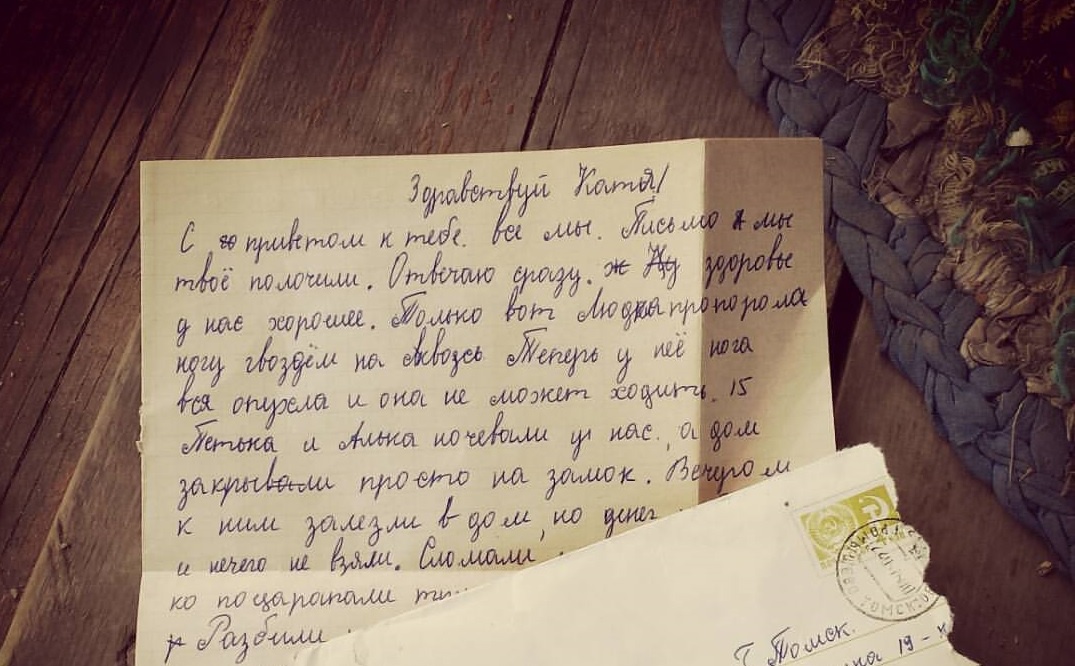 Здравствуй Катя!
С приветом к тебе. все мы. Письмо мы
твоё полочили. Отвечаю сразу. здоровье
у нас хорошее. Только вот Людка пропорола
ногу гвоздём на Теперь у неё нога
вся опухла и она не может ходить. 15
Петька и Алька ночевали у нас, а дом
закрывали просто на замок. Вечером
к ним залезли в дом, но денег
и нечего не взяли. Сломали
ко поцарапали
Разбили
г. Томск.
19 -